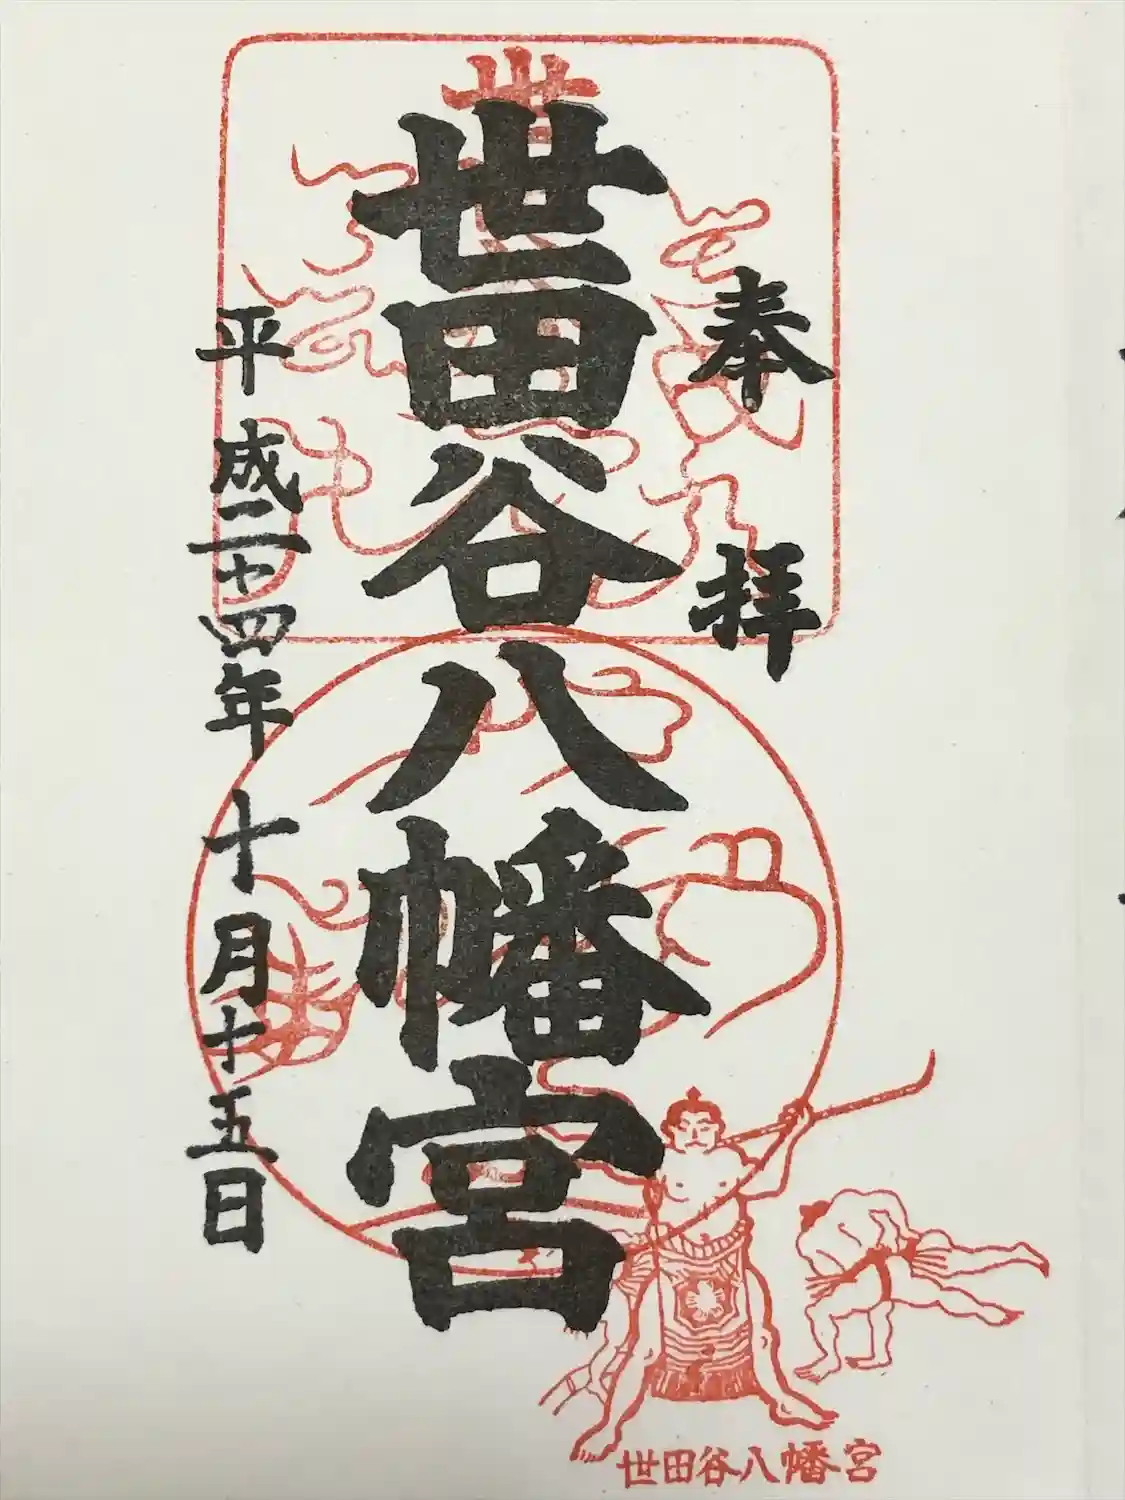 奉拝
世
世田谷八幡宮
平成二十四年十月十五日
世田谷八幡宮